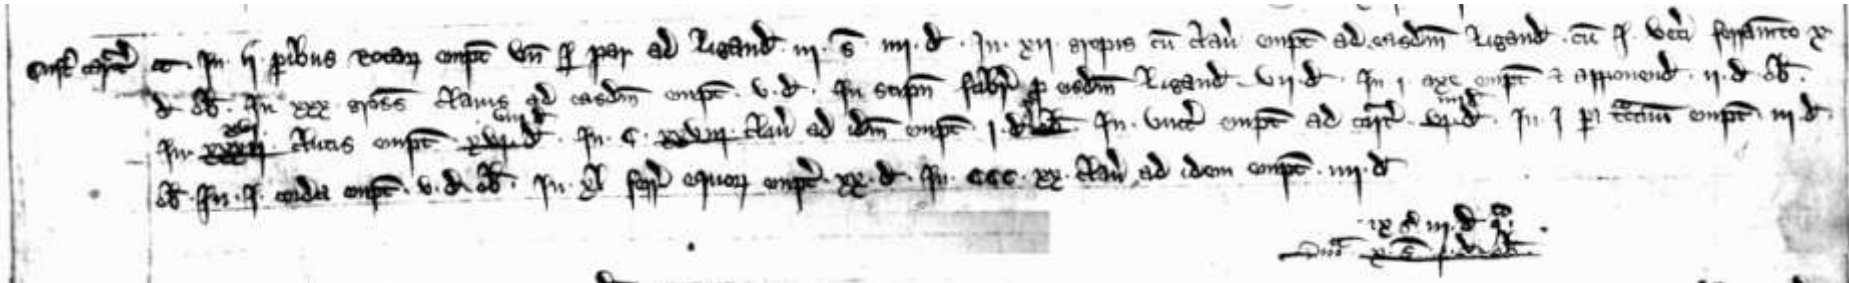 Cust caret It. In. ij. paribus rotar empt un p par ad ligand. iij. s. iiij. d. In. xij. gropis cu clau empt ad easdm ligand. cu j. veti ferramto x
d ob. In xxx. gross clauis ad easdm empt. v. d. In stipn fabri p easdm ligand. vij. d. In j. axe empt t apponend. ij. d. ob.
In. clutis empt. In. c. clau ad idm empt. j. d. In. unct empt ad caret. In. j p tractuu empt. iij. d.
ob. In. j. corda empt. v. d. ob. In. xl ferr equor empt. xx. d. In. ccc. xx. clau ad idem empt. iiij. d
ix s iij. d q.
x. s. j. d. ob.